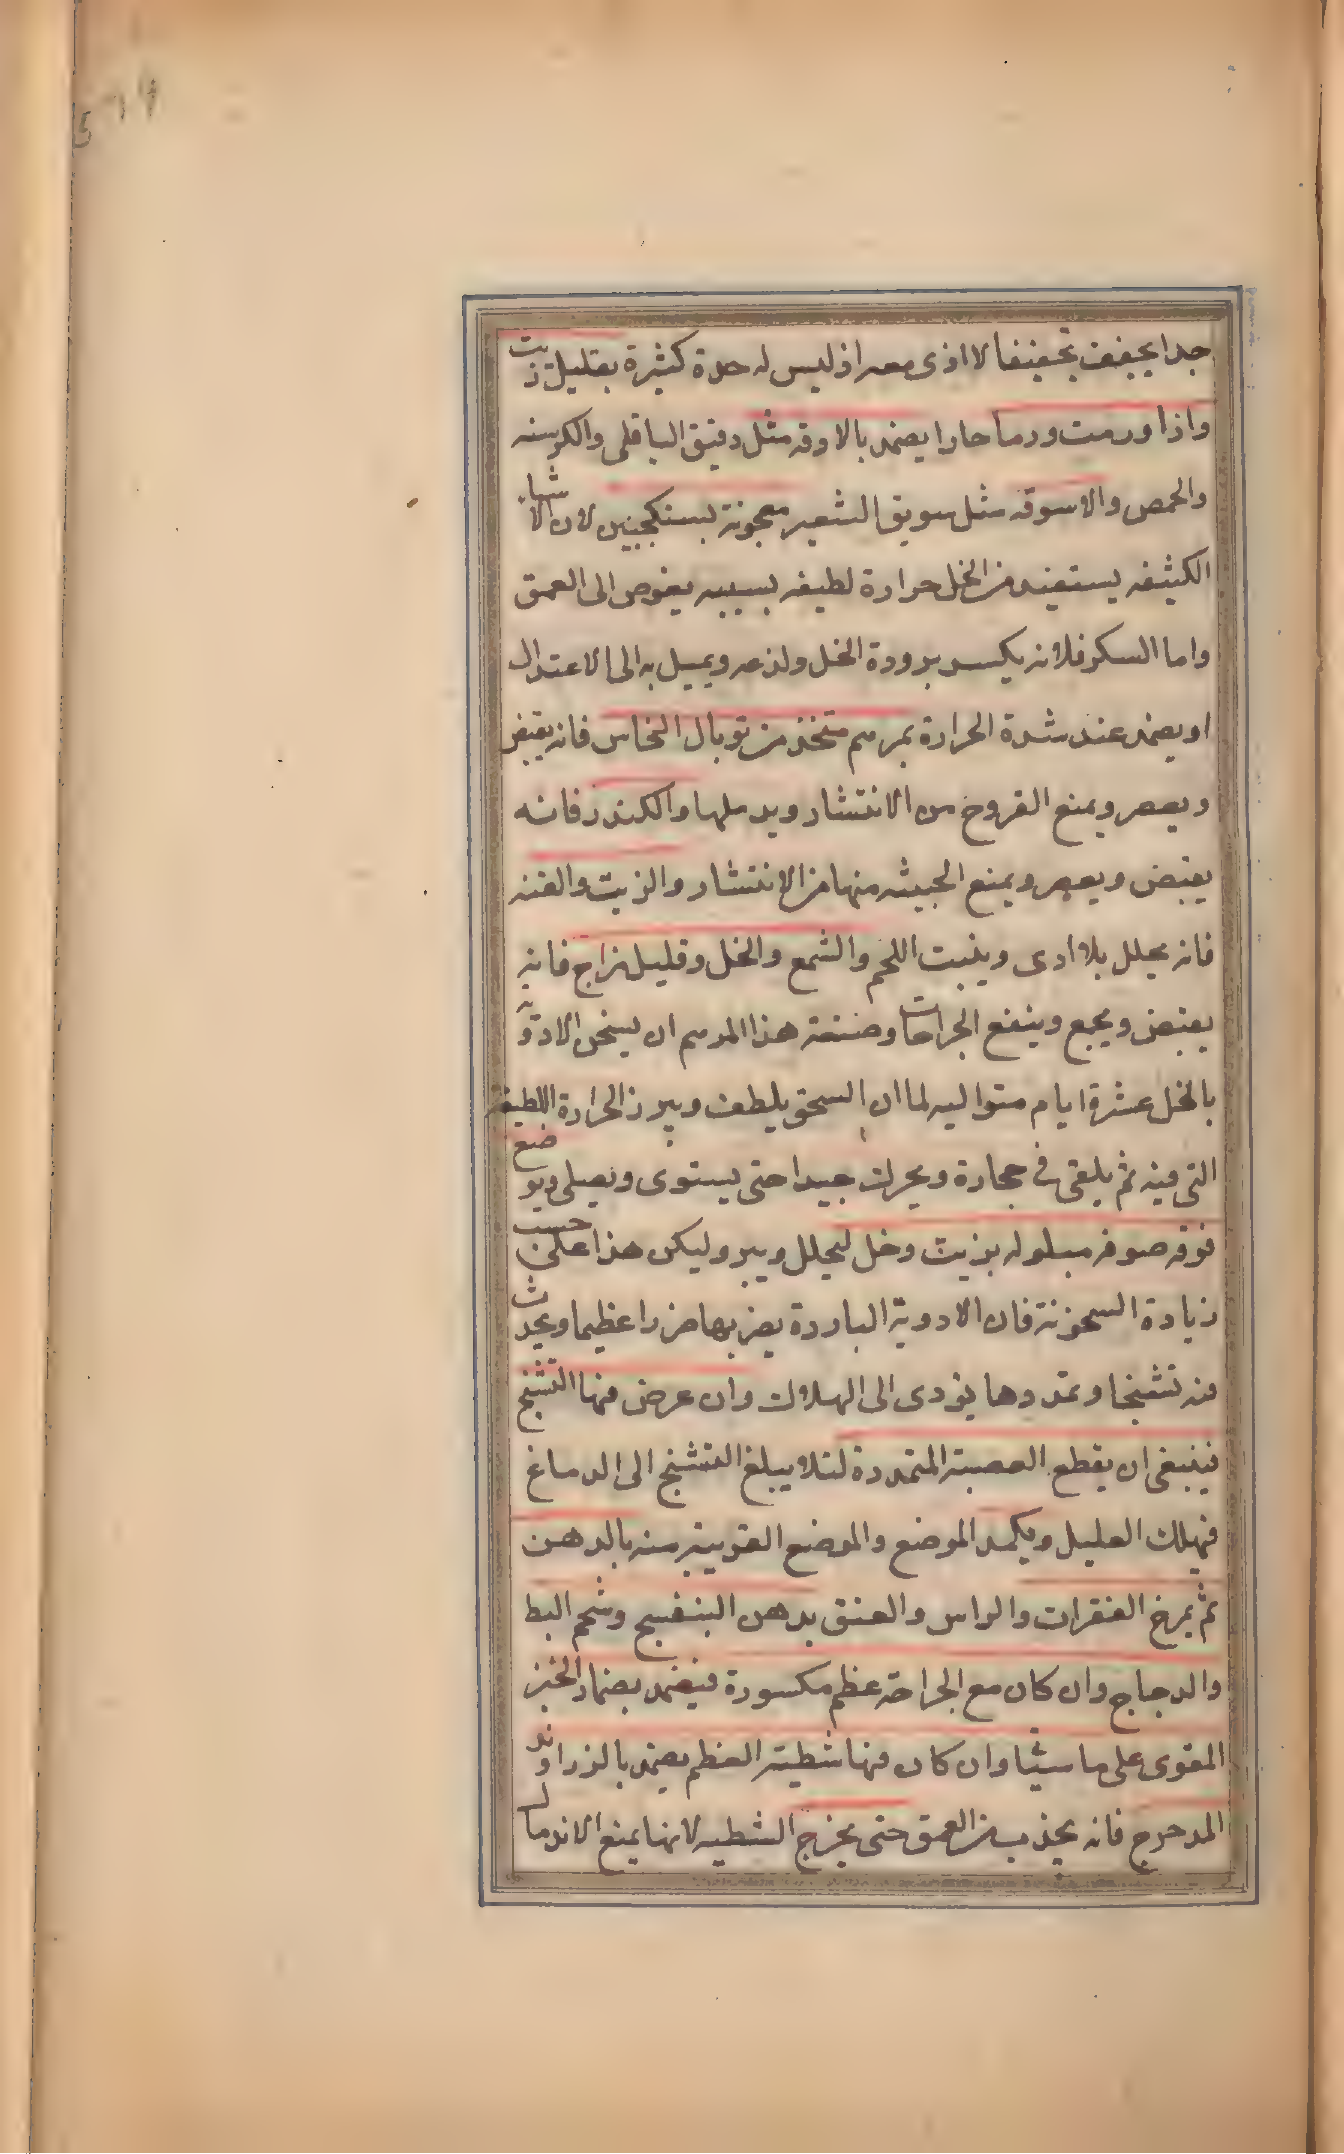 جدا يجفف تجفيفا لا اذى معه اذ ليس له حدة كثيرة بقليل زيت
واذا ورمت ورما حارا يضمد بالادقه مثل دقيق الباقلى والكرسنه
والحمص والاسوقه مثل سويق الشعير معجونة بسنكجبين لان الاشياء
الكثيفه يستفيد من الخل حرارة لطيفه بسببه يغوص الى العمق
واما السكر فلانه يكسر برودة الخل ولذعه ويميل به الى الاعتدال
او يضمد عند شدة الحرارة بمرهم متخذ من توبال النحاس فانه يقبض
ويعصر ويمنع القروح من الانتشار ويدملها والكندر فانه
يقبض ويعصر ويمنع الخبيثه منها من الانتشار والزيت والقنه
فانه يحلل بلا اذى وينبت اللحم والشمع والخل وقليل زاج فانه
يقبض ويجمع وينفع الجراحات وصنعة هذا المرهم ان يسحق الادوية
بالخل عشرة ايام متواليه لما ان السحق يلطف ويبرز الحرارة اللطيفة
التى فيه ثم يلقى فى حجارة ويحرك جيدا حتى يستوى ويصلى ويوضع
فوقه صوفه مبلوله بزيت وخل ليحلل ويبرد وليكن هذا على حسب
زيادة السخونة فان الادوية الباردة يضر بها ضررا عظيما ويحدث
منه تشنجا وتمددها يؤدى الى الهلاك وان عرض منها التشنج
فينبغى ان يقطع العصبة المتمددة لئلا يبلغ التشنج الى الدماغ
فيهلك العليل ويكمد الموضع والموضع القريبة منه بالدهن
ثم يمرخ الفقرات والراس والعنق بدهن البنفسج وشحم البط
والدجاج وان كان مع الجراحة عظم مكسورة فيضمد بضماد الخبز
المقوى على ما سيئا وان كان فيها شظية العظم يضمد بالزراوند
المدحرج فانه يجذب من العمق حتى يخرج الشظيه لانها يمنع الاندمال